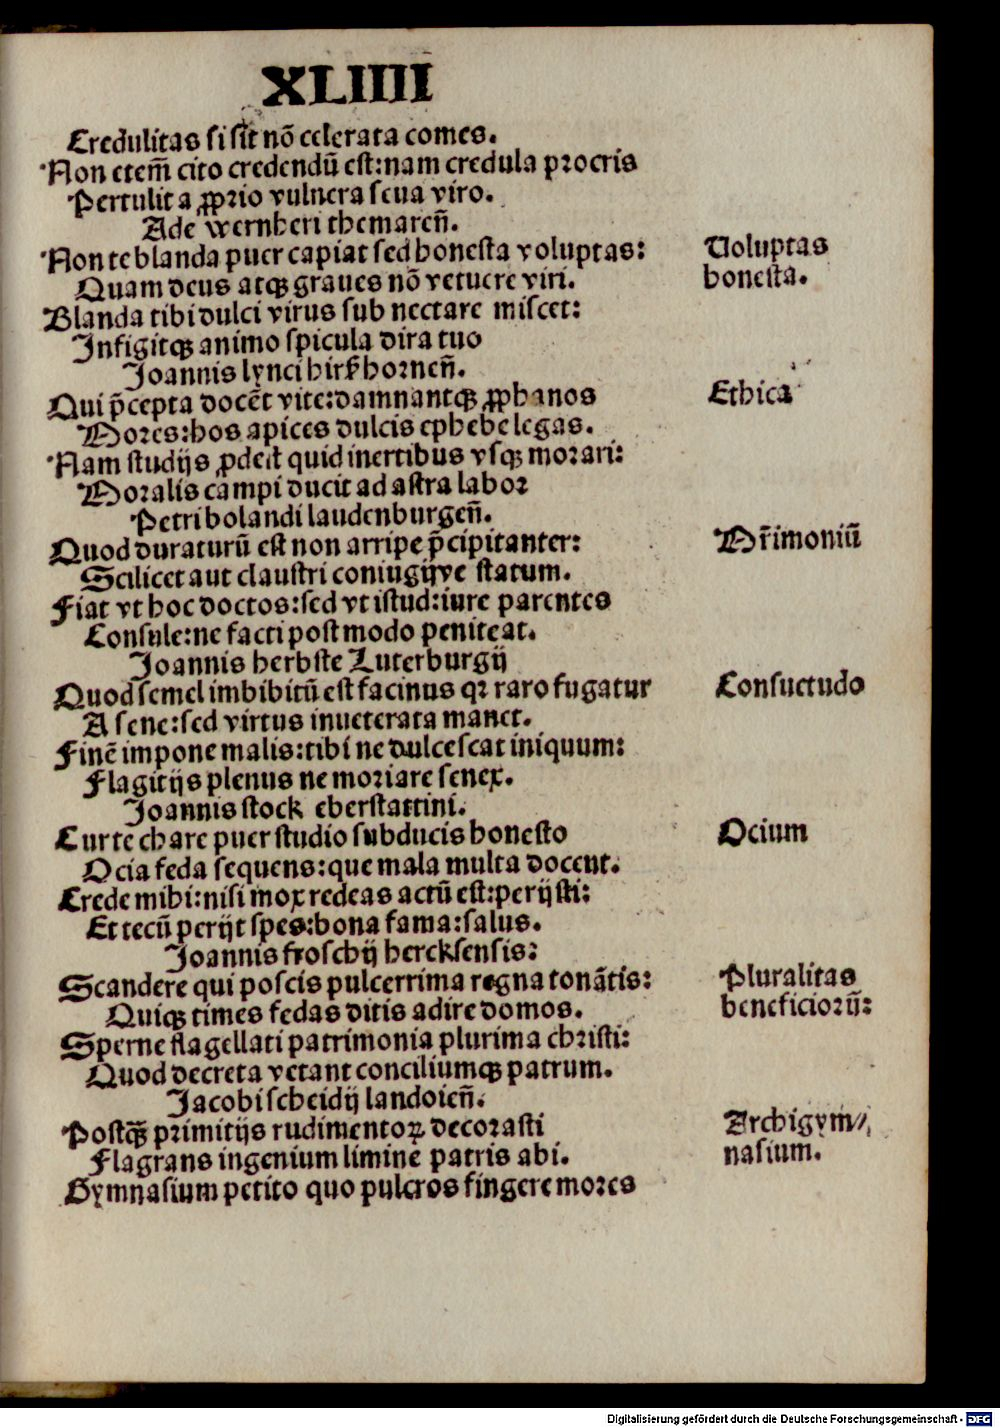 XLIIII
Credulitas si sit nō celerata comes.
Non etem̄ cito credendū est:nam credula procris
Pertulit a ꝓprio vulnera seua viro.
Ade wernheri themareñ.
Non te blanda puer capiat sed honesta voluptas: Uoluptas
Quam deus atqꝫ graues nō vetuere viri. honesta.
Blanda tibi dulci virus sub nectare miscet:
Infigitqꝫ animo spicula dira tuo
Joannis lynci hirſzhorneñ.
Qui p̄cepta docēt vite:damnantqꝫ ꝓphanos Ethica
Mores:hos apices dulcis ephebe legas.
Nam studijs ꝓdeſt quid inertibus vsqꝫ morari:
Moralis campi ducit ad astra labor
Petri bolandi laudenburgeñ.
Quod duraturū est non arripe p̄cipitanter: Mr̄imoniū
Scilicet aut claustri coniugijve statum.
Fiat vt hoc doctos:sed vt istud:iure parentes
Consule:ne facti postmodo peniteat.
Joannis herbste Luterburgij
Quod semel imbibitū est facinus qꝛ raro fugatur Consuetudo
A sene:sed virtus inueterata manet.
Finē impone malis:tibi ne dulcescat iniquum:
Flagitijs plenus ne moriare senex.
Joannis stock eberstattini.
Cur te chare puer studio subducis honesto Ocium
Ocia feda sequens:que mala multa docent.
Crede mihi:nisi mox redeas actū est:perijsti:
Et tecū perijt spes:bona fama:salus.
Joannis froschij hercksensis:
Scandere qui poscis pulcerrima regna tonātis: Pluralitas
Quiqꝫ times fedas ditis adire domos. beneficiorū:
Sperne flagellati patrimonia plurima christi:
Quod decreta vetant conciliumqꝫ patrum.
Jacobi scheidij landoieñ.
Postqꝫ̄ primitijs rudimentoꝝ decorasti Archigym⸗
Flagrans ingenium limine patris abi. nasium.
Gymnasium petito quo pulcros fingere mores
Digitalisierung gefördert durch die Deutsche Forschungsgemeinschaft - DFG